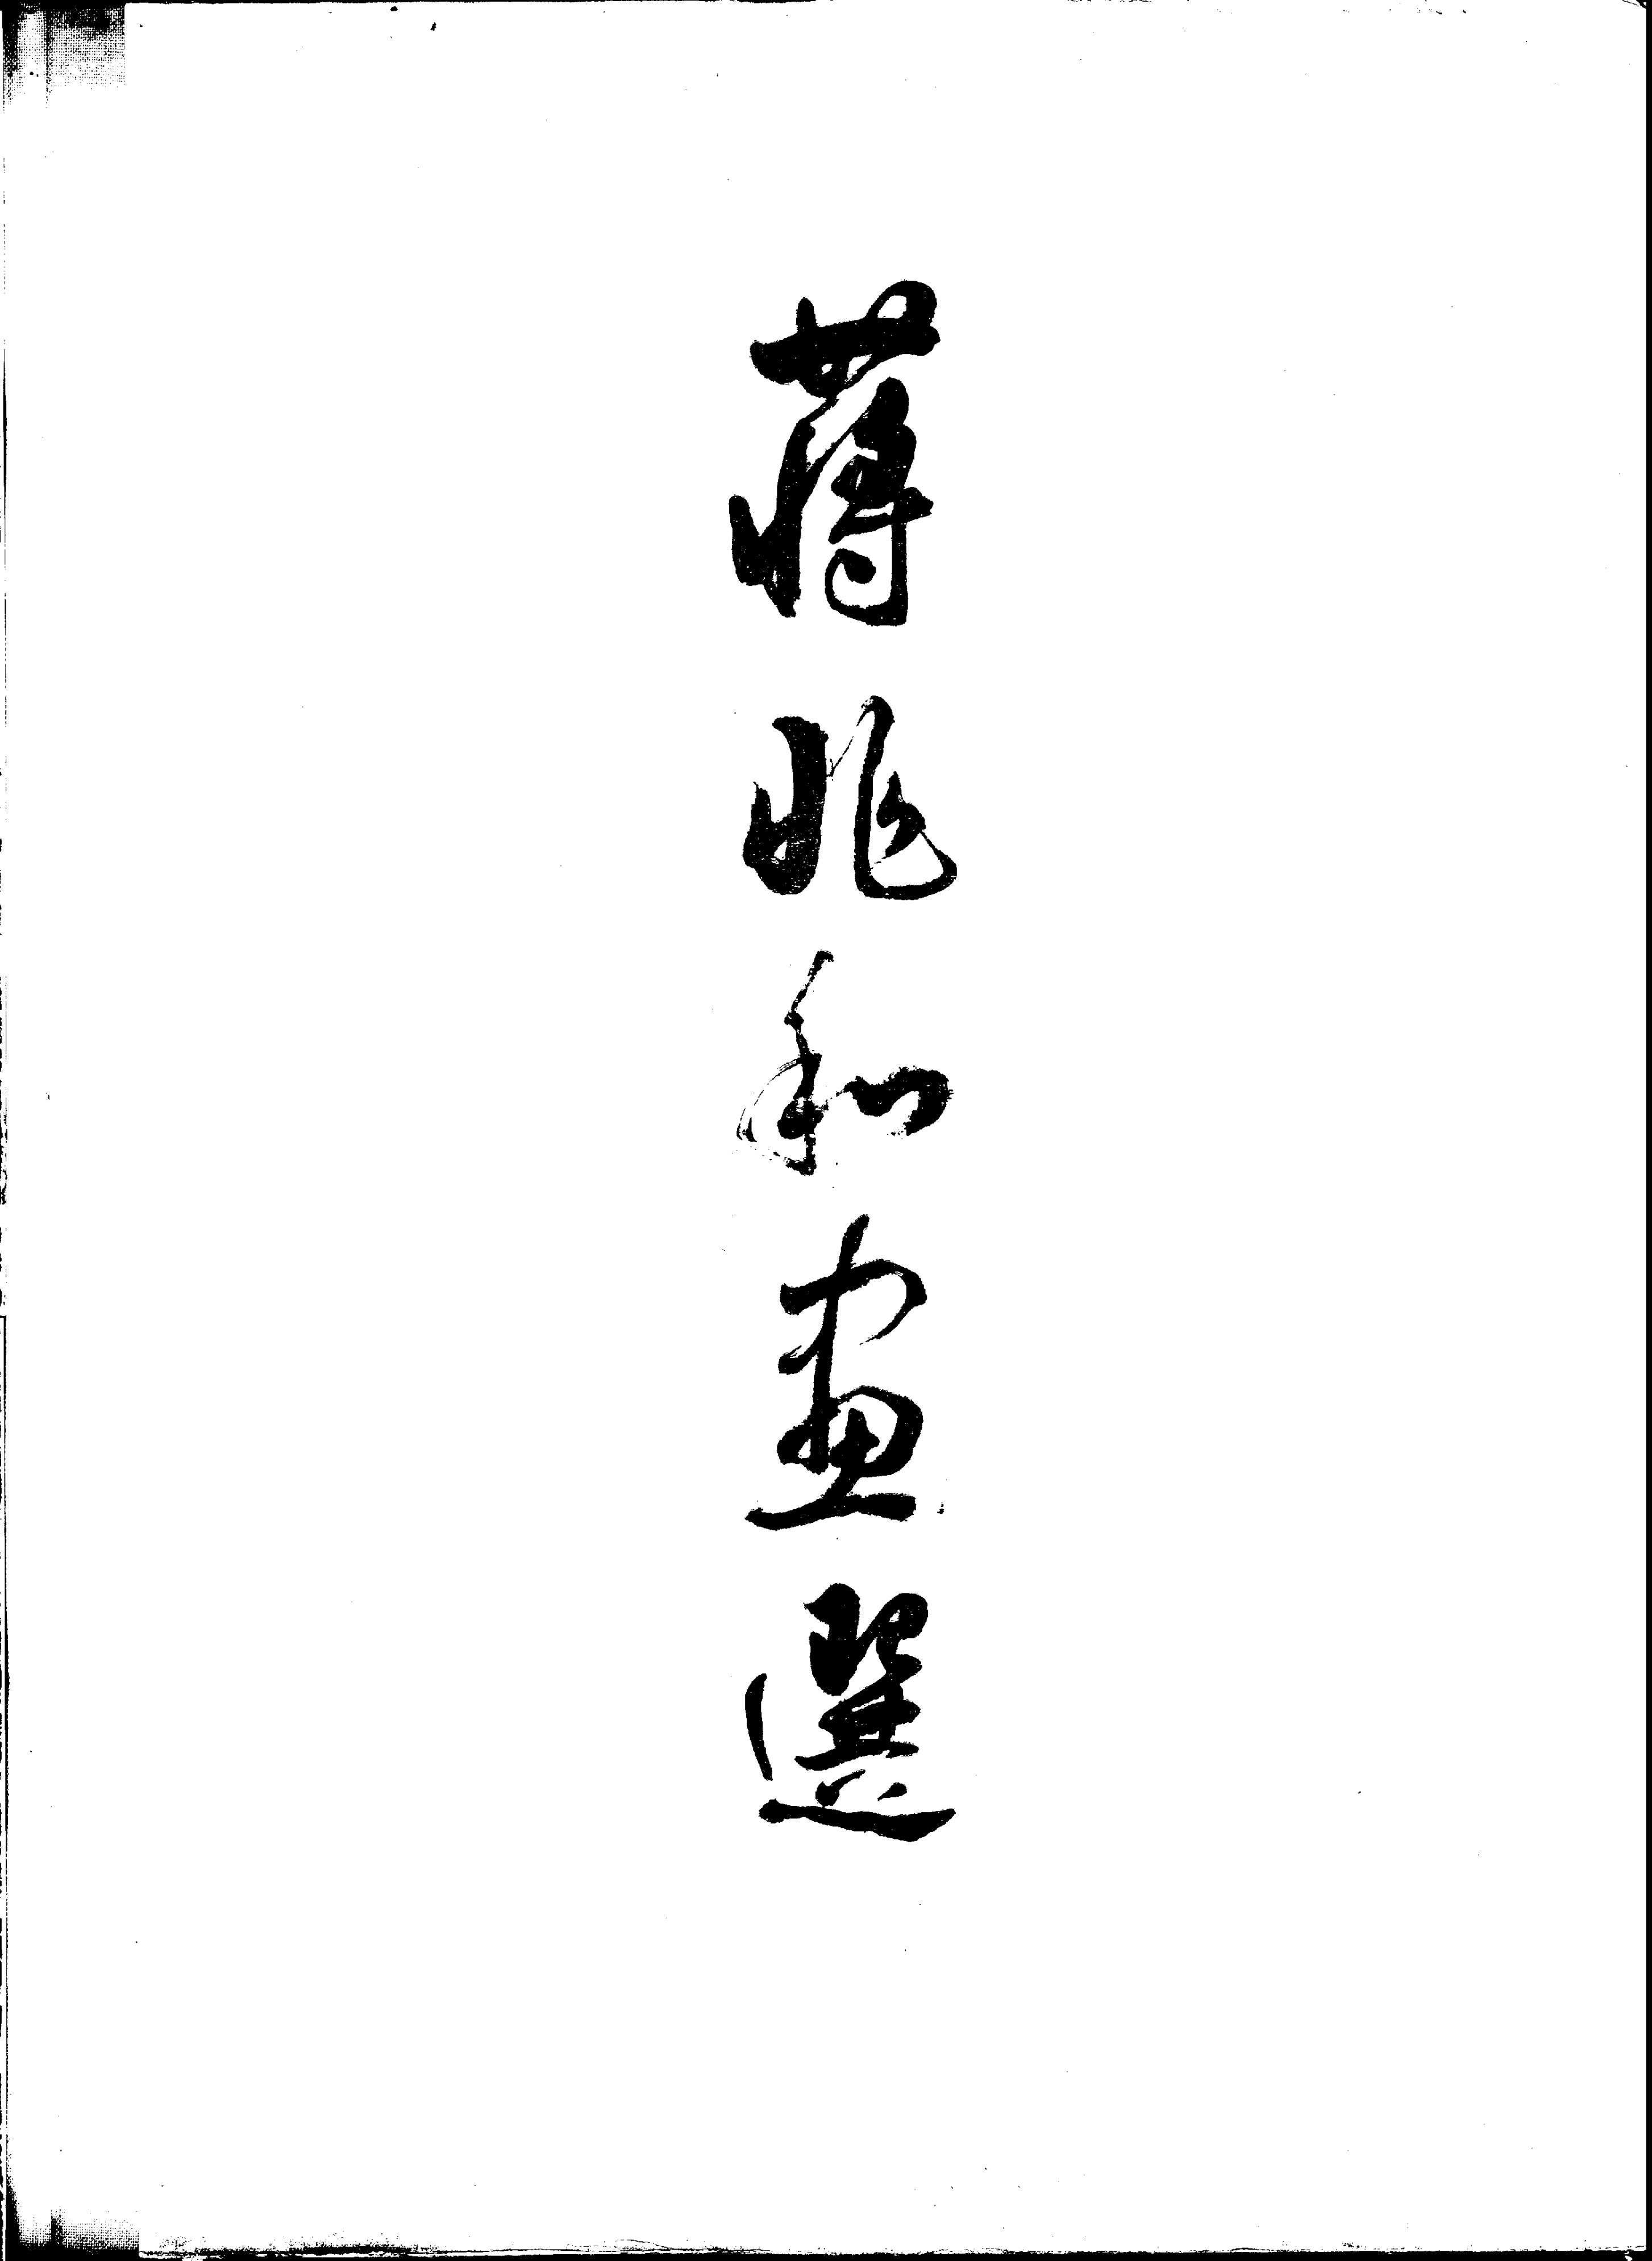 蔣兆和畫選